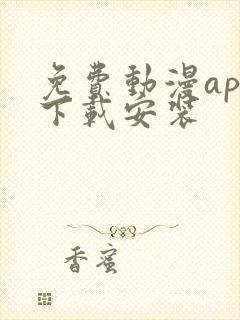 免費動漫ap
下載安裝
香蜜